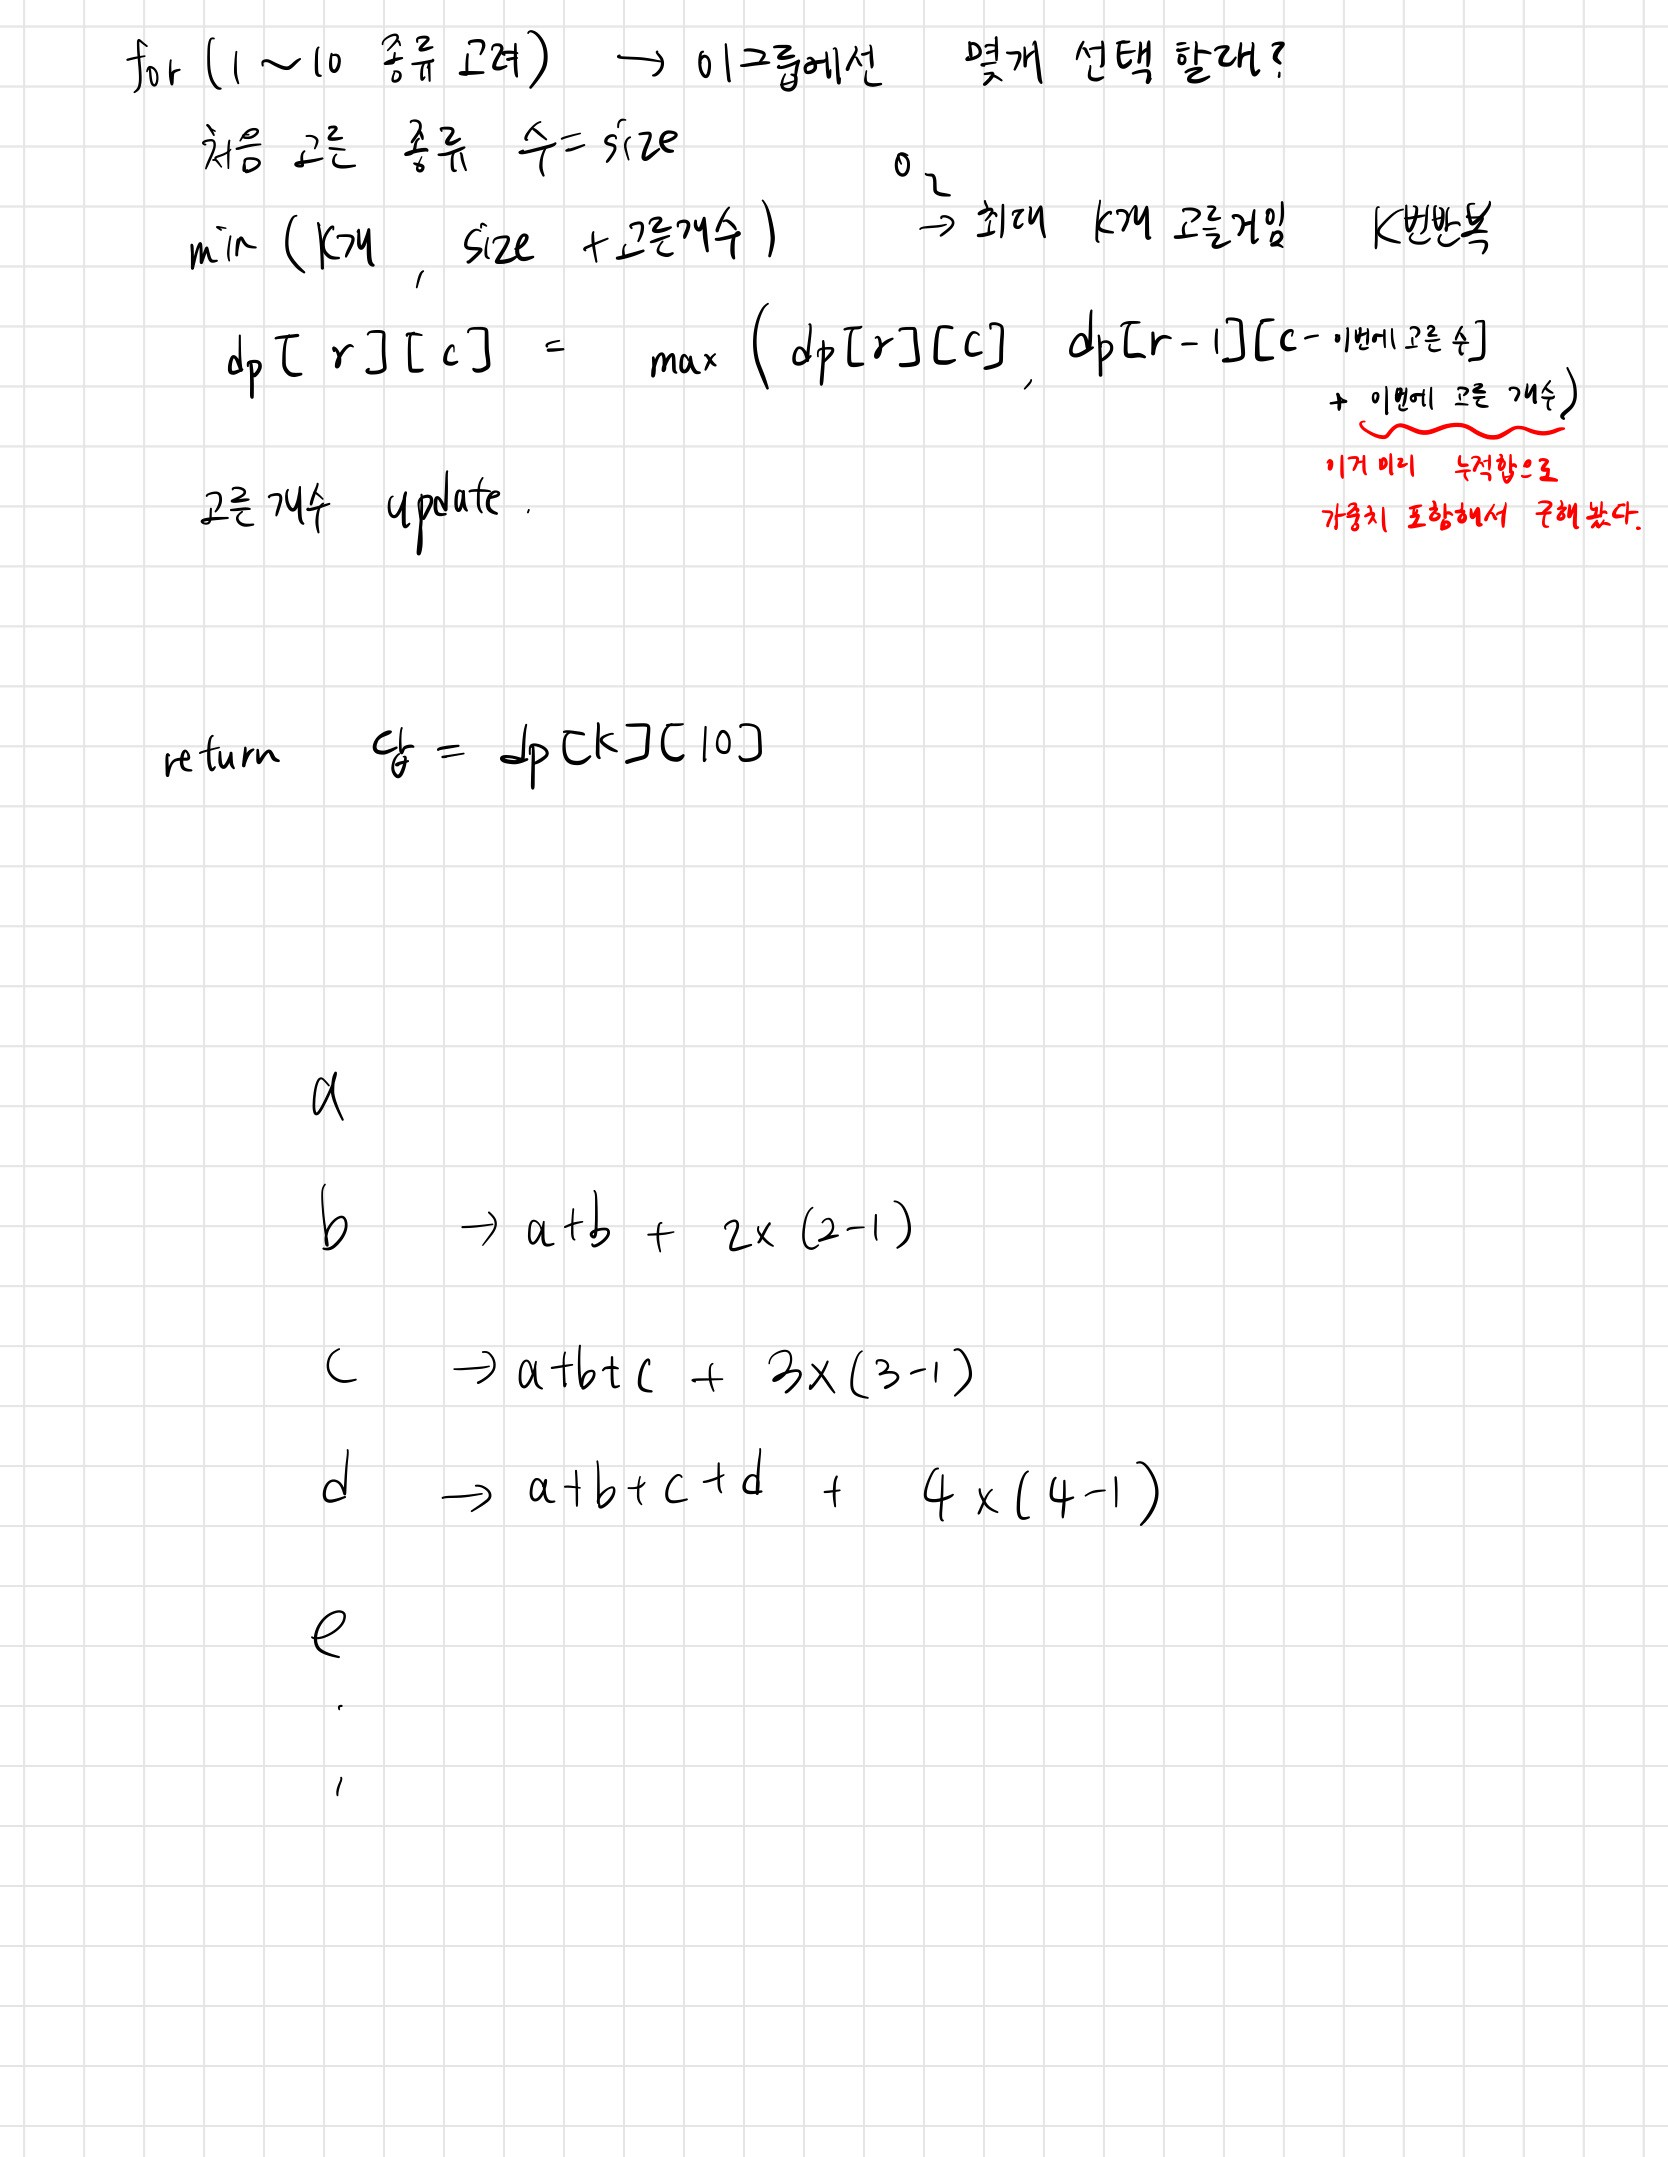 for (1~10 종류 고려) → 이그룹에선 몇개 선택 할래?
처음 고른 종류 수 = size
min (K개, size + 고른개수) → 최대 K개 고를거임 K번반복
dp[r][c] = max (dp[r][c], dp[r-1][c-이번에 고른 수]
+ 이번에 고른 개수)
이거 미리 누적합으로
가중치 포함해서 구해 놨다.
고른 개수 update.
return 답 = dp[K][10]
a
b → a+b + 2x(2-1)
c → a+b+c + 3x(3-1)
d → a+b+c+d + 4x(4-1)
e
.
.